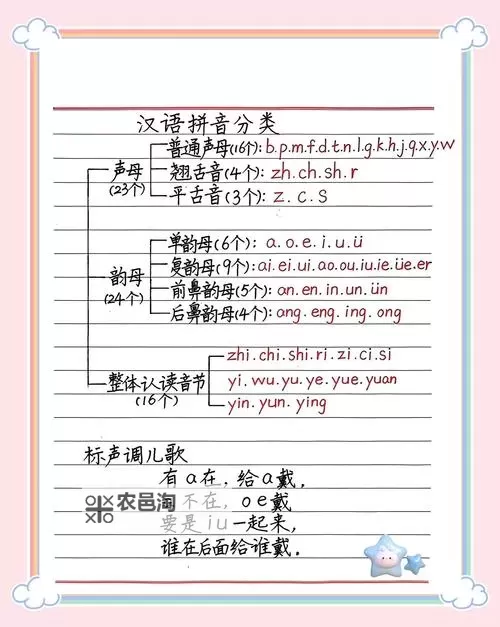 汉语拼音分类
声母
(23个)
普通声母(16个): b.p.m.f.d.t.n.l.g.k.h.j.q.x.y.w
翘舌音(4个): zh.ch.sh.r
平舌音(3个): z.c.s
韵母
(24个)
单韵母(6个): a.o.e.i.u.ü
复韵母(9个): ai.ei.ui.ao.ou.iu.ie.üe.er
前鼻韵母(5个): an.en.in.un.ün
后鼻韵母(4个): ang.eng.ing.ong
整体认读音节
(16个)
zhi.chi.shi.ri.zi.ci.si
yi.wu.yu.ye.yue.yuan
yin.yun.ying
标声调儿歌
有a在,给a戴,
不在,oe戴
要是iu一起来,
谁在后面给谁戴.
农邑淘